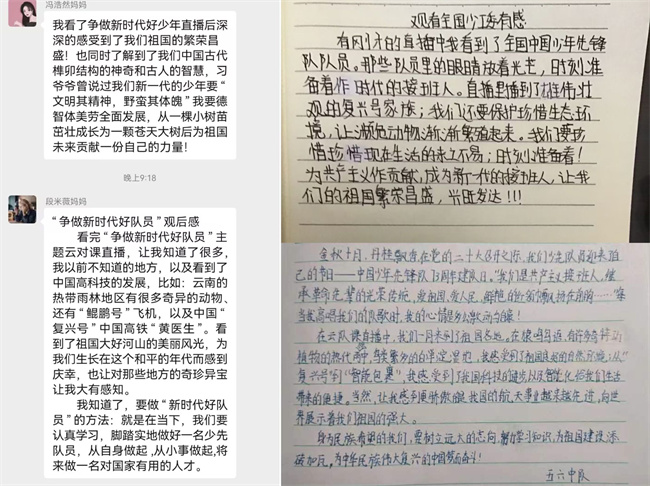 冯浩然妈妈
我看了争做新时代好少年直播后深
深的感受到了我们祖国的繁荣昌
盛！也同时了解到了我们中国古代
榫卯结构的神奇和古人的智慧，习
爷爷曾说过我们新一代的少年要“
文明其精神，野蛮其体魄”我要德
智体美劳全面发展，从一棵小树苗
茁壮成长为一颗苍天大树后为祖国
未来贡献一份自己的力量！
晚上9:18
段米薇妈妈
“争做新时代好队员”观后感
看完“争做新时代好队员”主
题云对课直播，让我知道了很多，
我以前不知道的地方，以及看到了
中国高科技的发展，比如：云南的
热带雨林地区有很多奇异的动物、
还有“鲲鹏号”飞机，以及中国“
复兴号”中国高铁“黄医生”。看
到了祖国大好河山的美丽风光，为
我们生长在这个和平的年代而感到
庆幸，也让对那些地方的奇珍异宝
让我大有感知。
我知道了，要做“新时代好队
员”的方法：就是在当下，我们要
认真学习，脚踏实地做好一名少先
队员，从自身做起,从小事做起,将
来做一名对国家有用的人才。
观看全国少工委有感
有刚才的直播中我看到了全国中国少年先锋
队队员。那些队员里的眼睛放着光芒，时刻准
备着作时代的接班人。直播里播到了雄伟壮
观的复兴号家族；我们还要保护珍惜生态环
境，让濒危动物渐渐繁殖起来。我们要珍
惜珍惜现在生活的来之不易；时刻准备着！
为共产主义作贡献，成为新一代的接班人，让我
们的祖国繁荣昌盛，兴旺发达!!!
金秋十月，丹桂飘香在党的二十大召开之际，我们少先队员迎来自
己的节日——中国少年先锋队73周年建队日。“我们是共产主义接班人，继
承革命先辈的光荣传统，爱祖国，爱人民，鲜艳的红领巾飘扬在前胸……”每
当我高唱我们的队歌时，我的心情是多么激动与自豪！
在云队课直播中，我们一同来到了祖国各地。在
植物的热代雨林，我感受到了祖国良好的自然环境；从“
复兴号”到“智能包裹”，我感受到了我国科技的进步以及智能化给我们生活
带来的便捷。当然，让我感到更骄傲的是我国的航天事业越来越先进，向世
界展示着我们祖国的强大。
身为民族希望的我们，要树立远大的志向，努力学习知识，为祖国建设添
砖加瓦，为中华民族伟大复兴的中国梦而奋斗！
五六中队